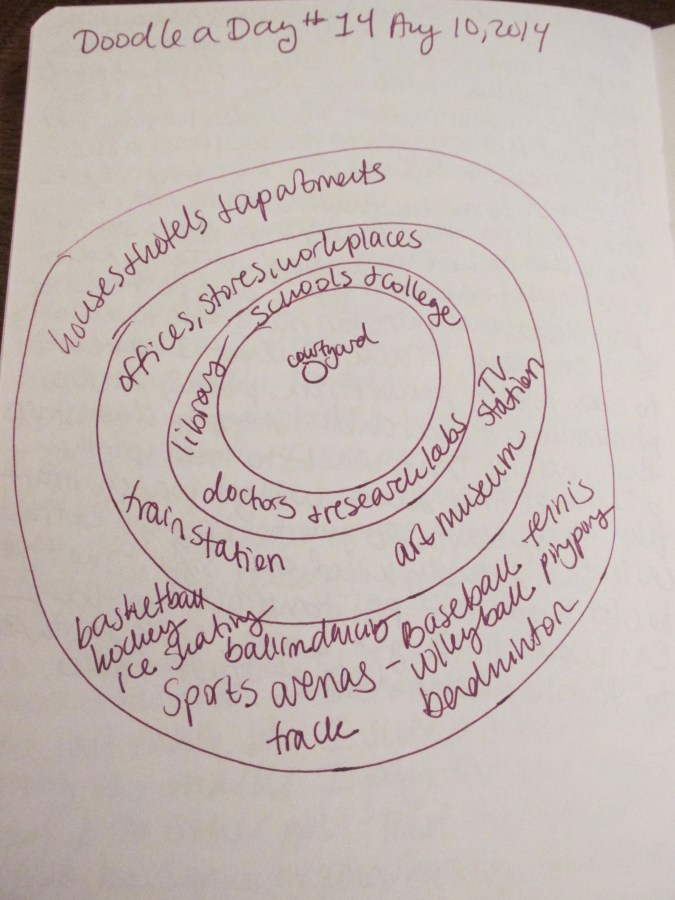 Doodle a Day # 14 Aug 10, 2014
houses + hotels + apartments
offices, stores, workplaces
schools + college
courtyard
library
TV
station
doctors + research labs
train station
art museum
tennis
pingpong
basketball
hockey
ice skating
Sports arenas - Baseball
volleyball
badminton
track